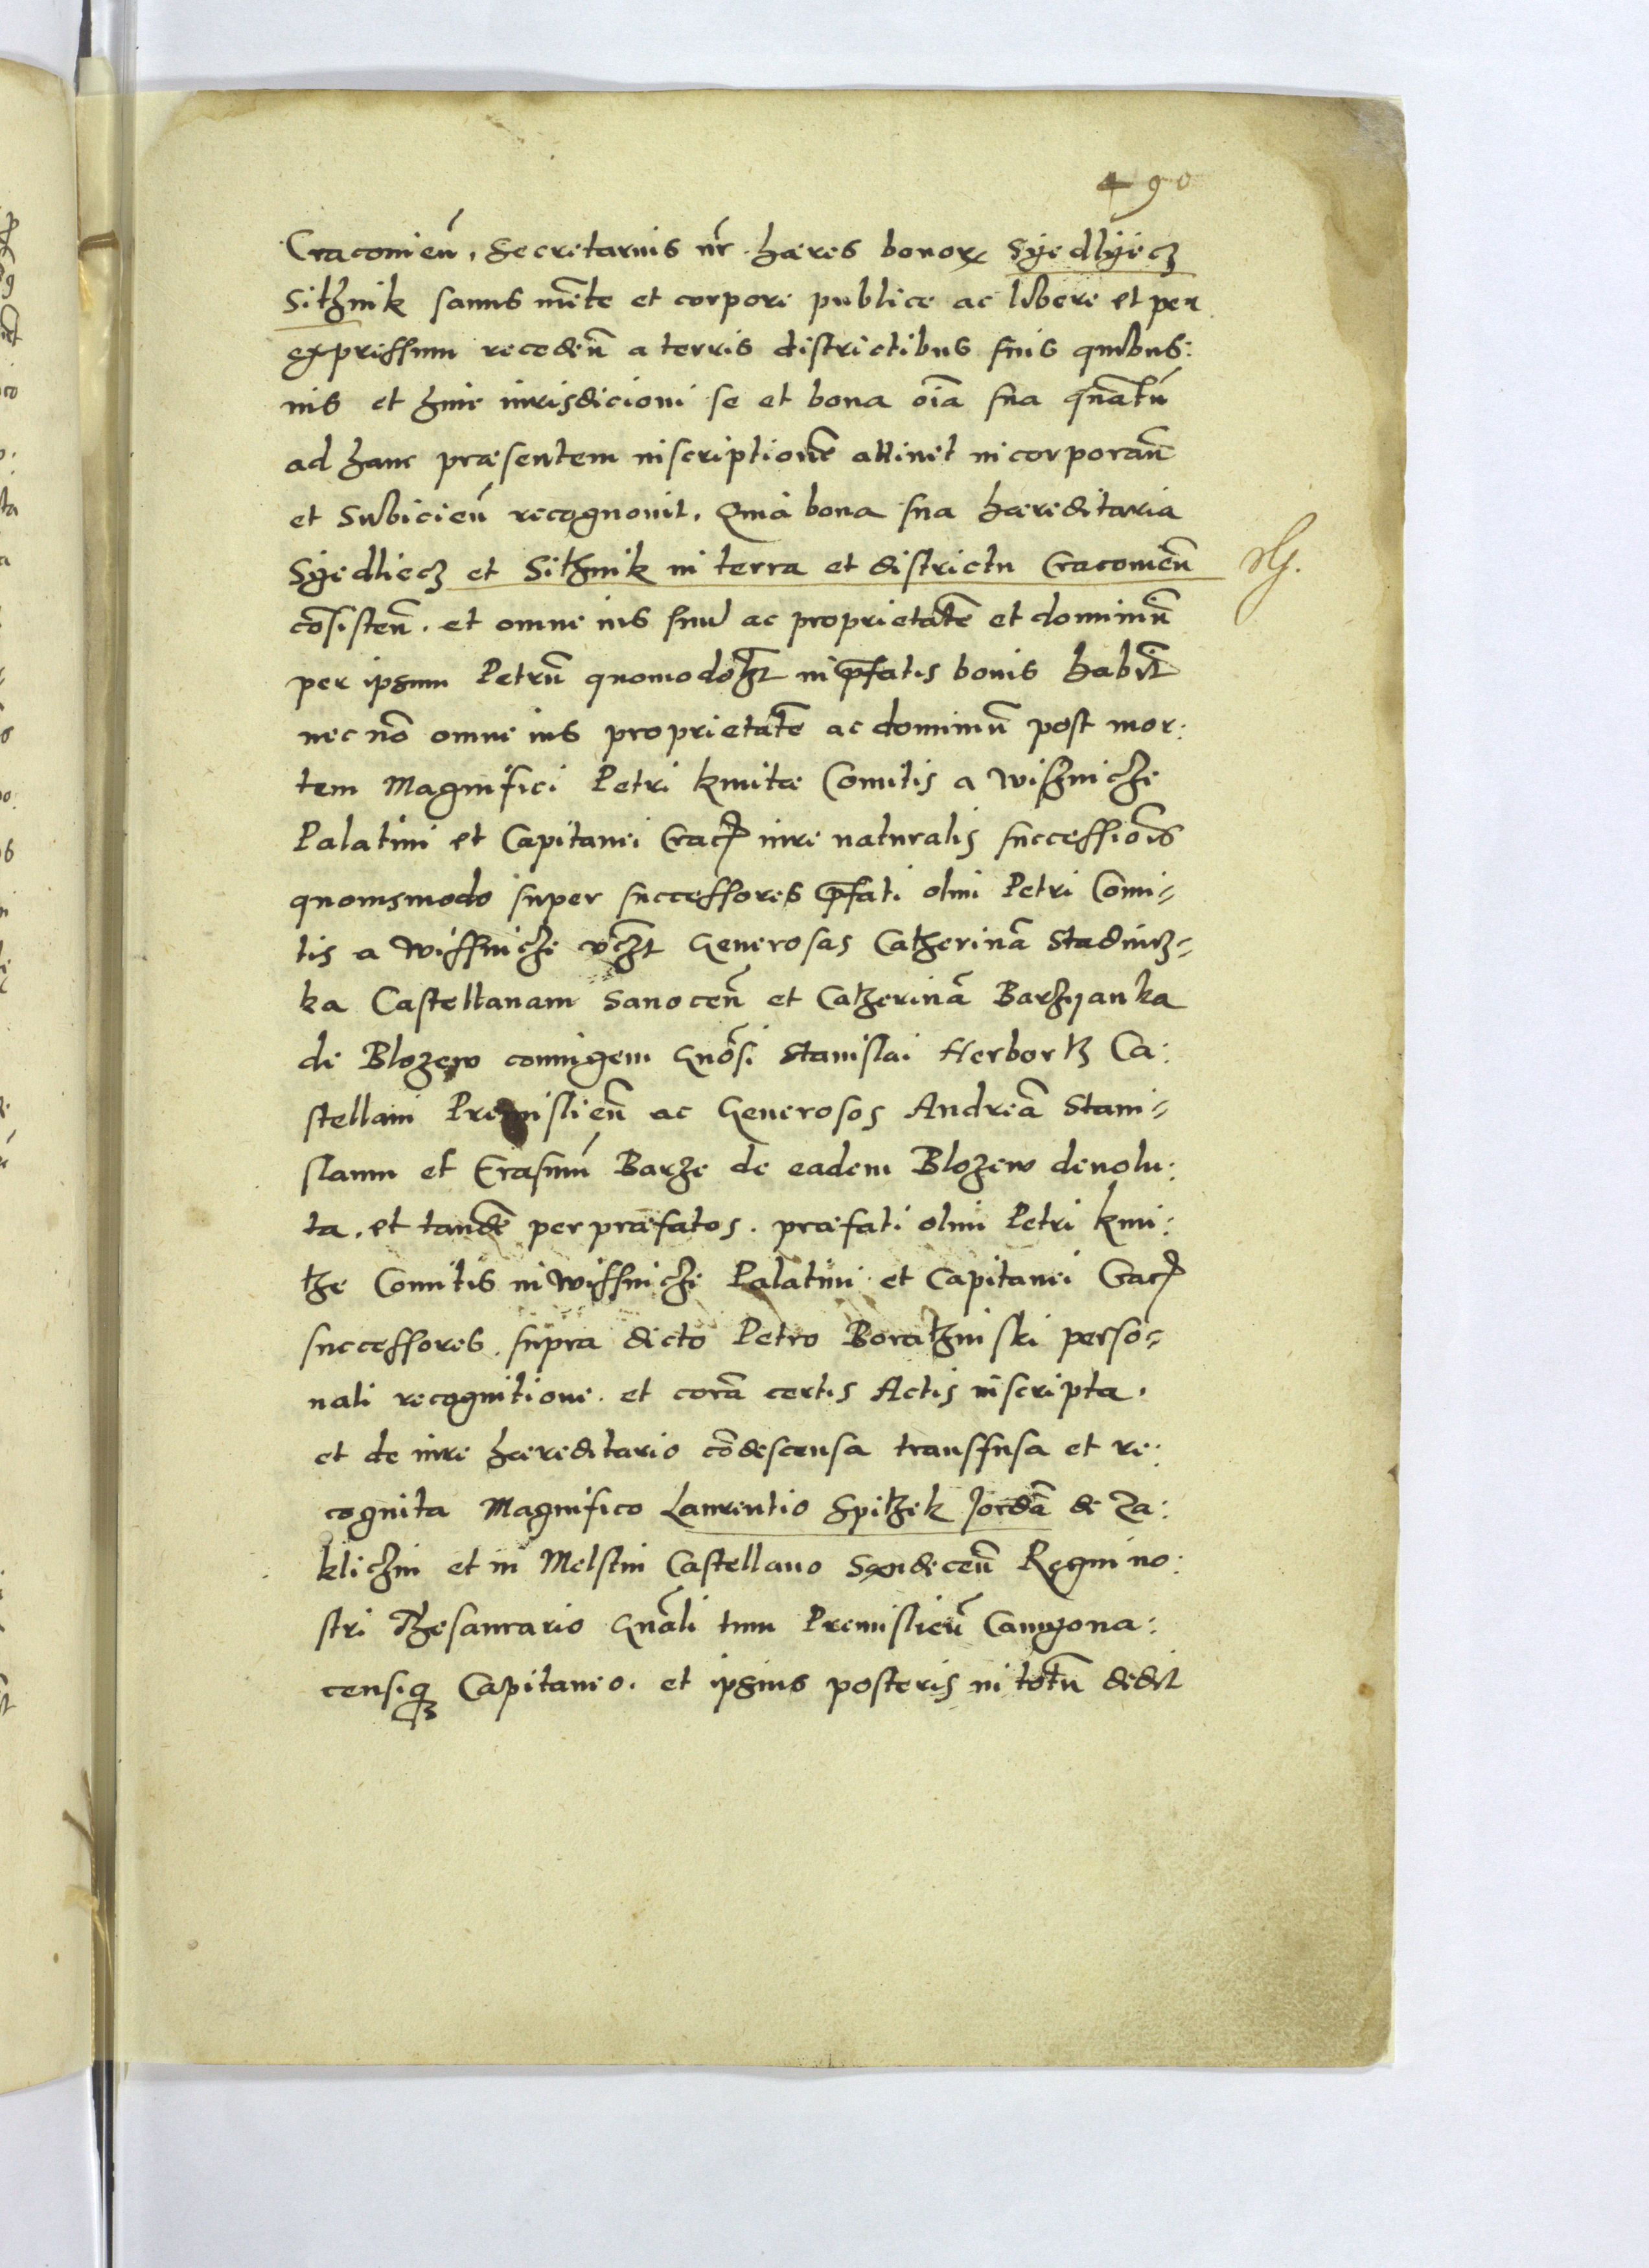 490
Cracovień. Secretarius nr̃ hæres bonorꝝ Syedlyecz
Sithnik sanus mẽte et corpore publice ac libere et per
expressum recedeñ a terris districtibus suis quibus:
uis et huic iurisdicioni se et bona oĩa sua quãtũ
ad hanc præsentem inscriptionẽ attinet incorporañ
et Subicieñ recognouit. Quia bona sua hæreditaria
Syedliecz et Sithnik in terra et districtu Cracovieñ
cõsisteñ. et omne ius suũ ac proprietatẽ et dominiũ
per ipsum Petrũ quomodolꝫt in p̃fatis bonis habit̃
nec nõ omne ius proprietatẽ ac dominiũ post mor:
tem Magnifici Petri kmitæ Comitis a Wisnicze
Palatini et Capitanei Crac̃ iure naturalis successiõis
quouismodo super successores p̃fati olim Petri Comi-
tis a Wissnicze Generosas Catherinã Stadnicz-
ka Castellanam Sanoceñ et Catherinã Barzyanka
de Blozew coniugem Gnõsi Stanislai Herborth Ca:
stellani Premislieñ ac Generosos Andreã Stani-
slaum et Erasmũ Barze de eadem Blozew deuolu:
ta. et tandẽ per præfatos. præfati olim Petri kmi:
thæ Comitis in Wissnicze Palatini et Capitanei Crac̃
successores. supra dicto Petro Borathinski perso-
nali recognitione. et corã certis Actis inscripta.
et de iure hæreditario cõdescensa transfusa et re:
cognita Magnifico Laurentio Spithek Jordã de Za:
kliczin et in Melstin Castellano Sandeceñ Regni no:
stri Thesaurario Gnãli tum Premislieñ Camyona:
censiqꝫ Capitaneo. et ipsius posteris in totũ dedit